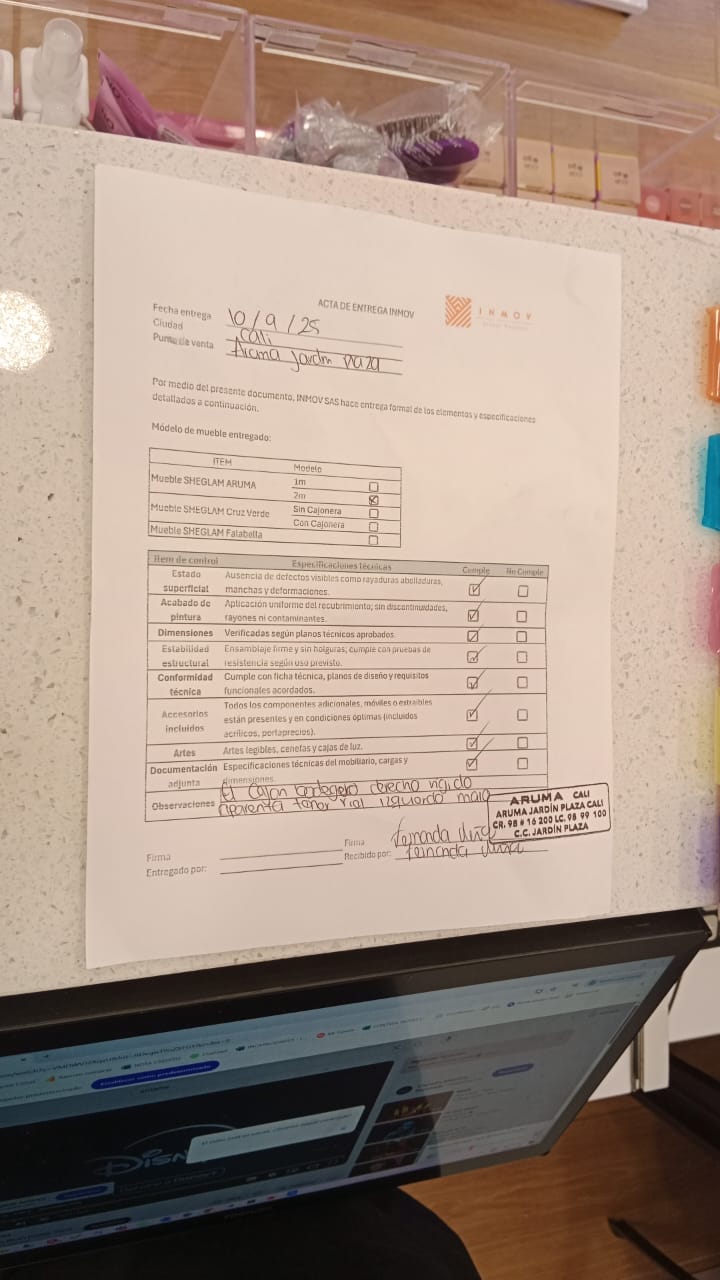 ACTA DE ENTREGA INMOV
INMOV
Fecha entrega 10/9/25
Ciudad Cali
Punto de venta Aruma Jardin Plaza
Por medio del presente documento, INMOV SAS hace entrega formal de los elementos y especificaciones
detallados a continuación.
Módelo de mueble entregado:
ITEM Modelo
Mueble SHEGLAM ARUMA 1m
2m
Mueble SHEGLAM Cruz Verde Sin Cajonera
Con Cajonera
Mueble SHEGLAM Falabella
Item de control Especificaciones técnicas Cumple No Cumple
Estado superficial Ausencia de defectos visibles como rayaduras abolladuras,
manchas y deformaciones.
Acabado de pintura Aplicación uniforme del recubrimiento; sin discontinuidades,
rayones ni contaminantes.
Dimensiones Verificadas según planos técnicos aprobados
Estabilidad estructural Ensamblaje firme y sin holguras; cumple con pruebas de
resistencia según uso previsto.
Conformidad técnica Cumple con ficha técnica, planos de diseño y requisitos
funcionales acordados.
Accesorios incluidos Todos los componentes adicionales, móviles o extraibles
están presentes y en condiciones óptimas (incluidos
acrílicos, portaprecios).
Artes Artes legibles, cenefas y cajas de luz.
Documentación adjunta Especificaciones técnicas del mobiliario, cargas y
dimensiones.
Observaciones El Cajon bodegero derecho rigido
aparenta tener rial izquierdo malo
ARUMA CALI
ARUMA JARDÍN PLAZA CALI
CR. 98 # 16 200 LC. 98 99 100
C.C. JARDÍN PLAZA
Firma
Entregado por:
Firma Fernanda
Recibido por: Fernanda
Establecer como predeterminado